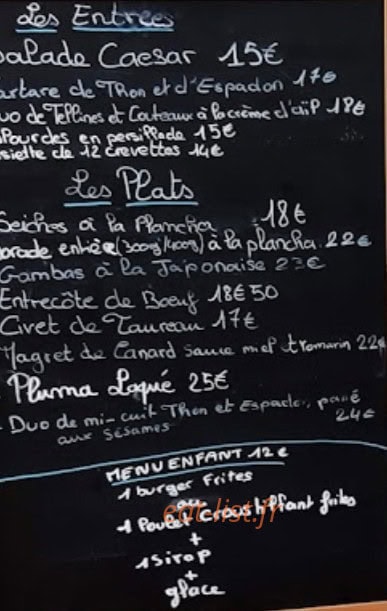 Les Entrées
Salade Caesar 15€
artare de Thon et d'Espadon 17€
uo de Tellines et Couteaux à la crème d'aïl 18€
lourdes en persillade 15€
siette de 12 crevettes 14€
Les Plats
Seiches à la Plancha 18€
orade entière (300g/400g) à la plancha 22€
Gambas à la Japonaise 23€
Entrecôte de Boeuf 18€50
Civet de Taureau 17€
Magret de Canard sauce miel tromarin 22€
Pluma Laqué 25€
Duo de mi-cuit Thon et Espadon, pané
aux sésames 24€
MENU ENFANT 12€
1 burger Frites
ou
1 Poulet Croustillant frites
+
1 Sirop
+
glace
eat-list.fr